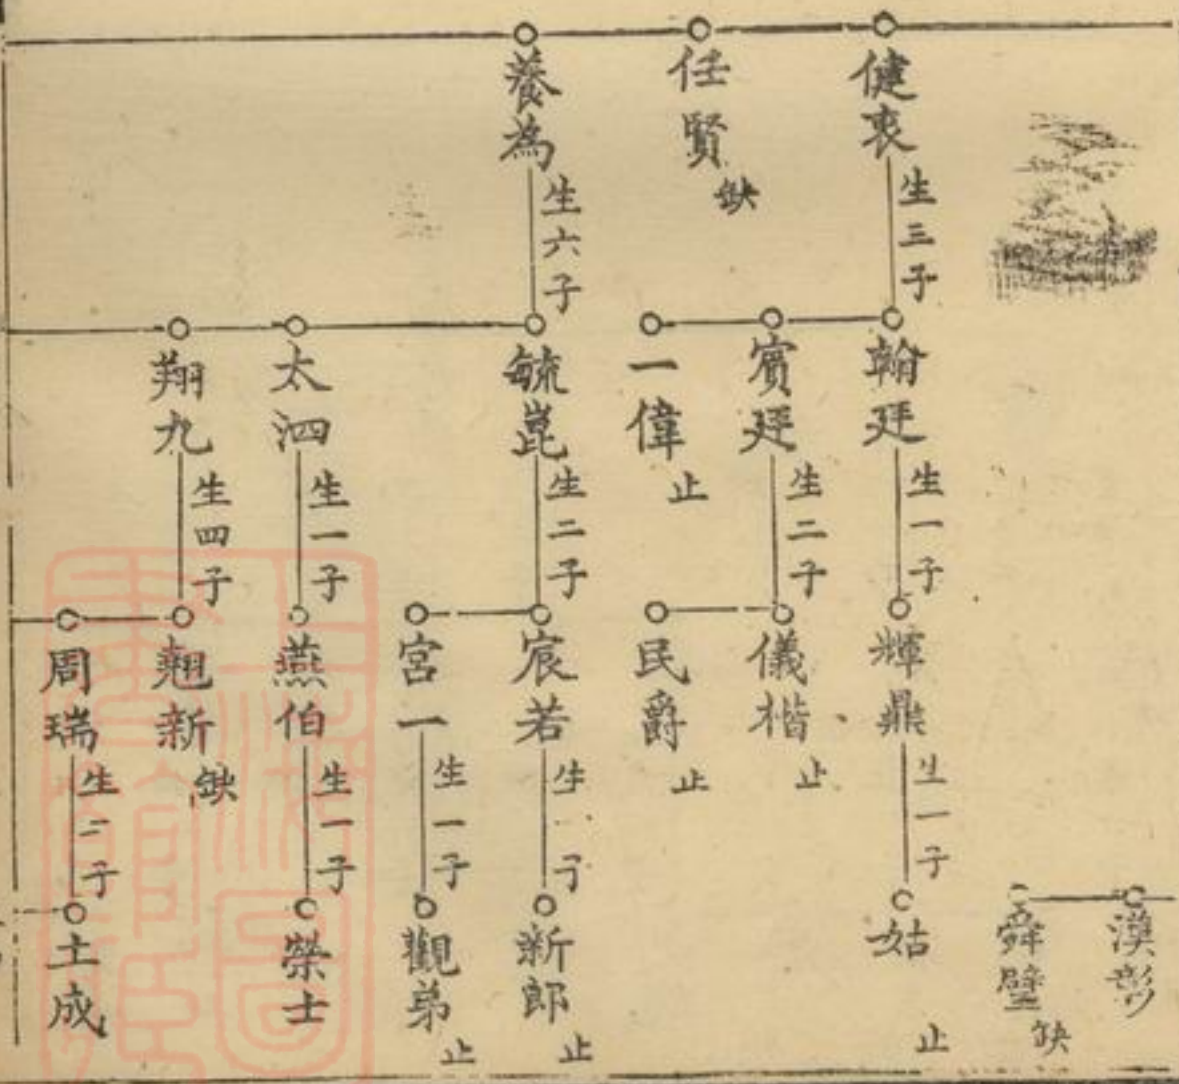 健衷
生三子
任賢
缺
養為
生六子
翰廷
生一子
賓廷
生二子
一偉
止
毓崑
生二子
太泗
生一子
翔九
生四子
輝鼎
生一子
儀楷
止
民爵
止
宸若
生一子
宮一
生一子
燕伯
生一子
翹新
缺
周瑞
生二子
漢彰
舜璧
缺
姑
止
新郎
止
觀弟
止
榮士
土成